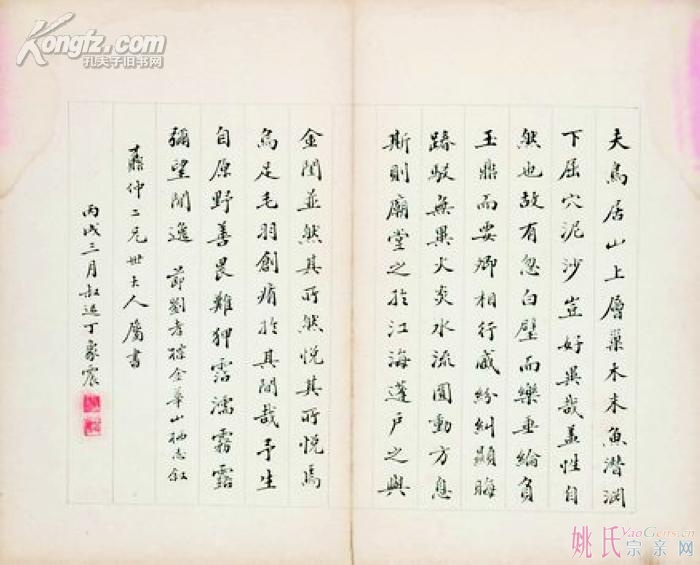 夫鳥居山上層巢木末魚潛淵
下屈穴泥沙豈好異哉蓋性自
然也故有忽白璧而樂垂綸負
玉鼎而要卿相行藏紛糾顯晦
踳駁無異火炎水流圓動方息
斯則廟堂之於江海蓬戶之與
金閨並然其所然悅其所悅焉
烏足毛羽創痏於其間哉予生
自原野善畏難狎霑濡霧露
彌望閒逸 節劉孝標金華山栖志敘
仲二兄世大人屬書
丙戌三月叔迅丁象震
Kongfz.com
孔夫子旧书网
姚氏YaoGens.cn
宗亲网